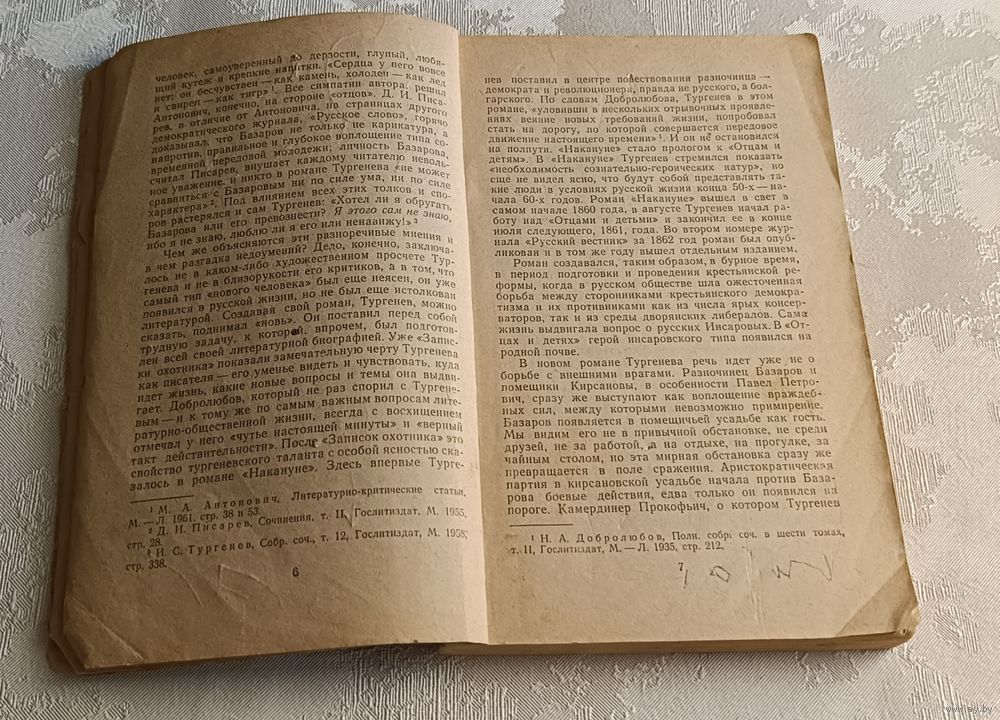 человек, самоуверенный до дерзости, глупый, любя-
щий кутеж и крепкие напитки. «Сердца у него вовсе
нет; он бесчувствен — как камень, холоден — как лед
и свиреп — как тигр»¹. Все симпатии автора, решил
Антонович, конечно, на стороне «отцов». Д. И. Писа-
рев, в отличие от Антоновича, на страницах другого
демократического журнала, «Русское слово», горячо
доказывал, что Базаров не только не карикатура, а
напротив, правильное и глубокое воплощение типа со-
временной передовой молодежи; личность Базарова,
считал Писарев, внушает каждому читателю неволь-
ное уважение, и никто в романе Тургенева «не может
сравниться с Базаровым ни по силе ума, ни по силе
характера»². Под влиянием всех этих толков и спо-
ров растерялся и сам Тургенев: «Хотел ли я обругать
Базарова или его превознести? Я этого сам не знаю,
ибо я не знаю, люблю ли я его или ненавижу!»³
Чем же объясняются эти разноречивые мнения и
в чем разгадка недоумений? Дело, конечно, заключа-
лось не в каком-либо художественном просчете Тур-
генева и не в близорукости его критиков, а в том, что
самый тип «нового человека» был еще неясен, он уже
появился в русской жизни, но не был еще истолкован
литературой. Создавая свой роман, Тургенев, можно
сказать, поднимал «новь». Он поставил перед собой
трудную задачу, к которой, впрочем, был подготов-
лен всей своей литературной биографией. Уже «Запис-
ки охотника» показали замечательную черту Тургенева
как писателя — его уменье видеть и чувствовать, куда
идет жизнь, какие новые вопросы и темы она выдви-
гает. Добролюбов, который не раз спорил с Тургене-
вым — и к тому же по самым важным вопросам лите-
ратурно-общественной жизни, всегда с восхищением
отмечал у него «чутье настоящей минуты» и «верный
такт действительности». После «Записок охотника» это
свойство тургеневского таланта с особой ясностью ска-
залось в романе «Накануне». Здесь впервые Турге-
¹ М. А. Антонович, Литературно-критические статьи,
М. — Л. 1961, стр. 38 и 53.
² Д. И. Писарев, Сочинения, т. II, Гослитиздат, М. 1955,
стр. 28.
³ И. С. Тургенев, Собр. соч., т. 12, Гослитиздат, М. 1958,
стр. 338.
6
нев поставил в центре повествования разночинца —
демократа и революционера, правда не русского, а бол-
гарского. По словам Добролюбова, Тургенев в этом
романе, «уловивши в нескольких отрывочных проявле-
ниях веяние новых требований жизни, попробовал
стать на дорогу, по которой совершается передовое
движение настоящего времени»¹. И он не остановился
на полпути. «Накануне» стало прологом к «Отцам и
детям». В «Накануне» Тургенев стремился показать
«необходимость сознательно-героических натур», но
ещё не видел ясно, что будут собой представлять та-
кие люди в условиях русской жизни конца 50-х — на-
чала 60-х годов. Роман «Накануне» вышел в свет в
самом начале 1860 года, в августе Тургенев начал ра-
боту над «Отцами и детьми» и закончил ее в конце
июля следующего, 1861, года. Во втором номере жур-
нала «Русский вестник» за 1862 год роман был опуб-
ликован и в том же году вышел отдельным изданием.
Роман создавался, таким образом, в бурное время,
в период подготовки и проведения крестьянской ре-
формы, когда в русском обществе шла ожесточенная
борьба между сторонниками крестьянского демокра-
тизма и их противниками как из числа ярых консер-
ваторов, так и из среды дворянских либералов. Сама
жизнь выдвигала вопрос о русских Инсаровых. В «От-
цах и детях» герой инсаровского типа появился на
родной почве.
В новом романе Тургенева речь идет уже не о
борьбе с внешними врагами. Разночинец Базаров и
помещики Кирсановы, в особенности Павел Петро-
вич, сразу же выступают как воплощение враждеб-
ных сил, между которыми невозможно примирение.
Базаров появляется в помещичьей усадьбе как гость.
Мы видим его не в привычной обстановке, не среди
друзей, не за работой, а на отдыхе, на прогулке, за
чайным столом, но эта мирная обстановка сразу же
превращается в поле сражения. Аристократическая
партия в кирсановской усадьбе начала против База-
рова боевые действия, едва только он появился на
пороге. Камердинер Прокофьич, о котором Тургенев
¹ Н. А. Добролюбов, Полн. собр. соч. в шести томах,
т. II, Гослитиздат, М. — Л. 1935, стр. 212.
7